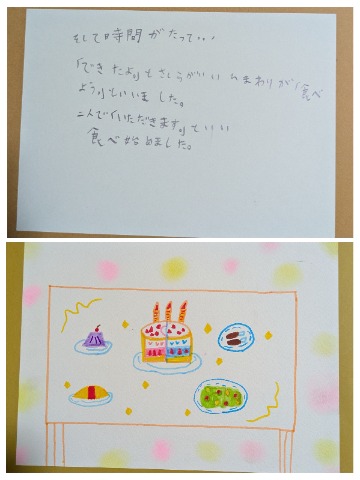 そして時間がたって...
「できたよ」とさくらがいい ひまわりが「食べ
よう」といいました。
二人で「いただきます」といい
食べ始めました。